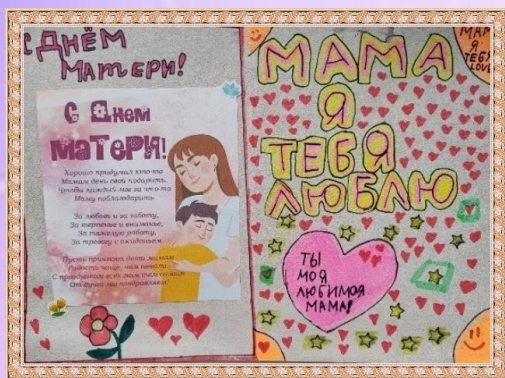 С ДНЁМ
МАТЕРИ!
С Днем
МАТЕРИ!
Хорошо придумал кто-то
Мамам день свой подарить.
Чтобы каждый мог за что-то
Маму поблагодарить.
За любовь и за заботу,
За терпенье и вниманье,
За тяжелую работу,
За тревогу с ожиданьем.
Пусть приносят дети мамам
Радость чаще, чем печали
С праздником всех мам тем самым
От души мы поздравляем!
МАМА
Я
ТЕБЯ
ЛЮБЛЮ
ТЫ
МОЯ
ЛЮБИМОЯ
МАМА!
МАМ
Я
ТЕБЯ
LOVE